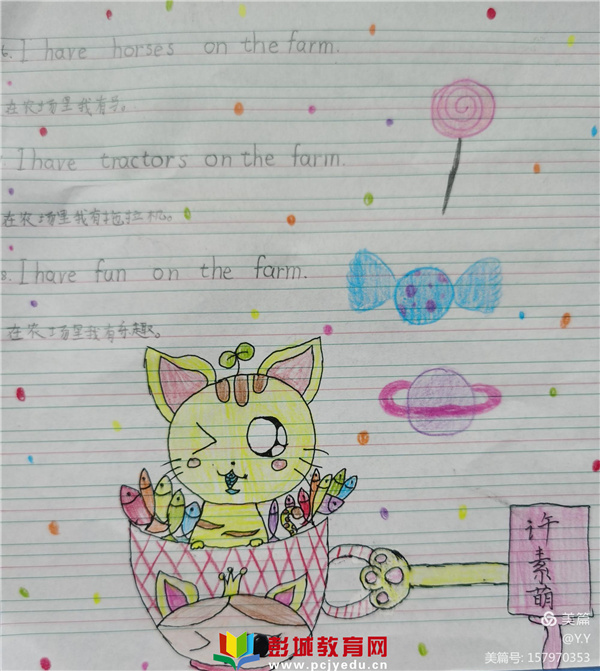 6. I have horses on the farm.
在农场里我有马。
I have tractors on the farm.
在农场里我有拖拉机。
8. I have fun on the farm.
在农场里我有乐趣。
许素萌
美篇
@Y.Y
美篇号: 157970353
彭城教育网
www.pcjyedu.cn